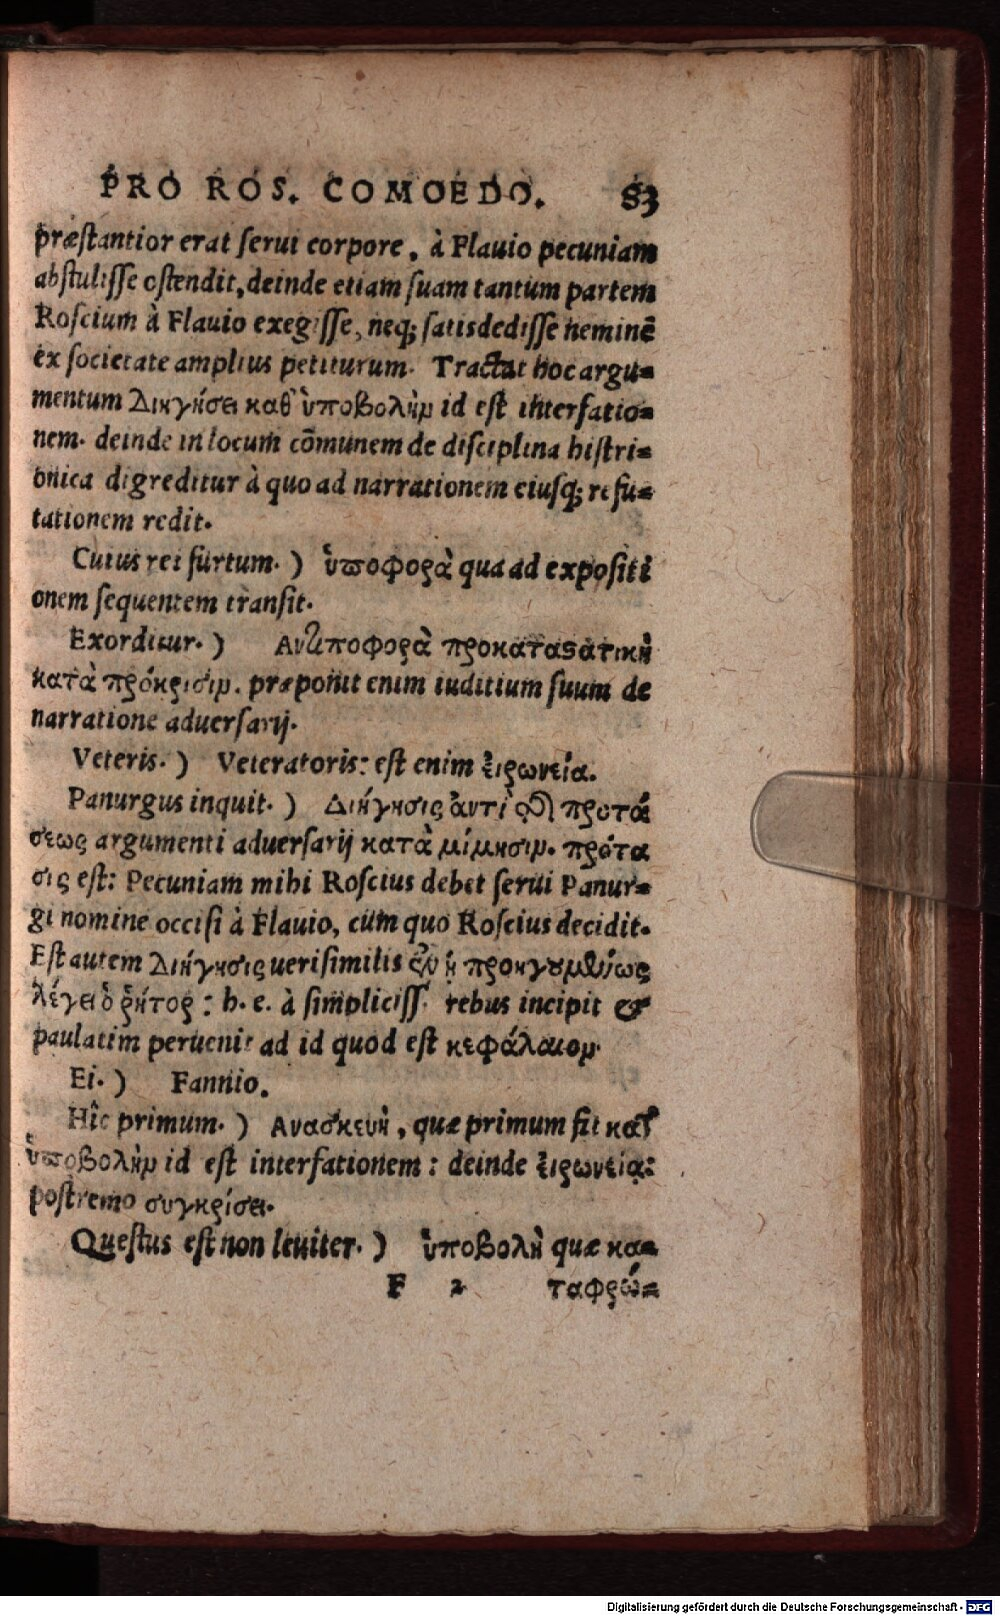 PRO ROS. COMOEDO. 83
præstantior erat serui corpore, à Flauio pecuniam
abstulisse ostendit, deinde etiam suam tantum partem
Roscium à Flauio exegisse, neq; satisdedisse neminē
ex societate amplius petiturum. Tractat hoc argu=
mentum Διηγήσει καθ' ὑποβολὴν id est interfatio=
nem. deinde in locum cōmunem de disciplina histri=
onica digreditur à quo ad narrationem eiusq; refu=
tationem redit.
Cuius rei furtum. ) ὑποφορὰ qua ad expositi
onem sequentem transit.
Exorditur. ) Ανθιποφορὰ προκαταϛατικὴ
κατὰ πρόκρισιν. præponit enim iuditium suum de
narratione aduersarij.
Veteris. ) Veteratoris: est enim ἐιρωνεία.
Panurgus inquit. ) Διήγησις ἀντὶ τῆ προτά
σεως argumenti aduersarij κατὰ μίμησιν. πρότα
σις est: Pecuniam mihi Roscius debet serui Panur=
gi nomine occisi à Flauio, cùm quo Roscius decidit.
Est autem Διήγησις uerisimilis ἐν ᾗ προηγουμένως
λέγει ὁ ῥήτορ: h. e. à simpliciss. rebus incipit &
paulatim peruenit ad id quod est κεφάλαιον.
Ei. ) Fannio.
Hîc primum. ) Ανασκευὴ, quæ primum fit καθ'
ὑποβολὴν id est interfationem: deinde ἐιρωνείᾳ:
postremo συγκρίσει.
Questus est non leuiter. ) ὑποβολὴ quæ κα=
F 2 ταφρώ=
Digitalisierung gefördert durch die Deutsche Forschungsgemeinschaft - DFG